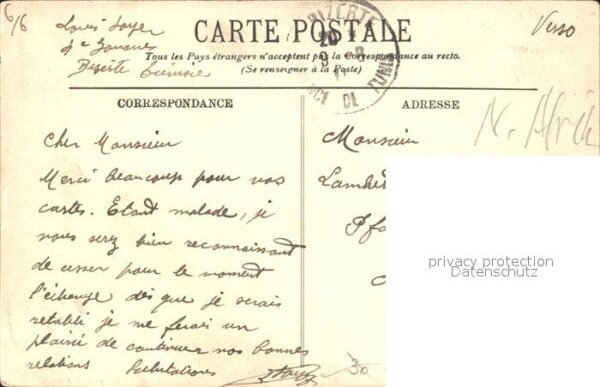 6/6
Louis Soyer
4e Zouaves
Bizerte Tunisie
CARTE POSTALE
Tous les Pays étrangers n'acceptent pas la Correspondance au recto.
(Se renseigner à la Poste)
Verso
BIZERTE
TUNISIE
CORRESPONDANCE
Cher Monsieur
Merci beaucoup pour vos
cartes. Etant malade, je
vous serez bien reconnaissant
de cesser pour le moment
l'échange dès que je serais
retabli je me ferai un
plaisir de continuer nos bonnes
relations Salutations
ADRESSE
N. Afrik
Monsieur
Lambert
Pfa
privacy protection
Datenschutz
30